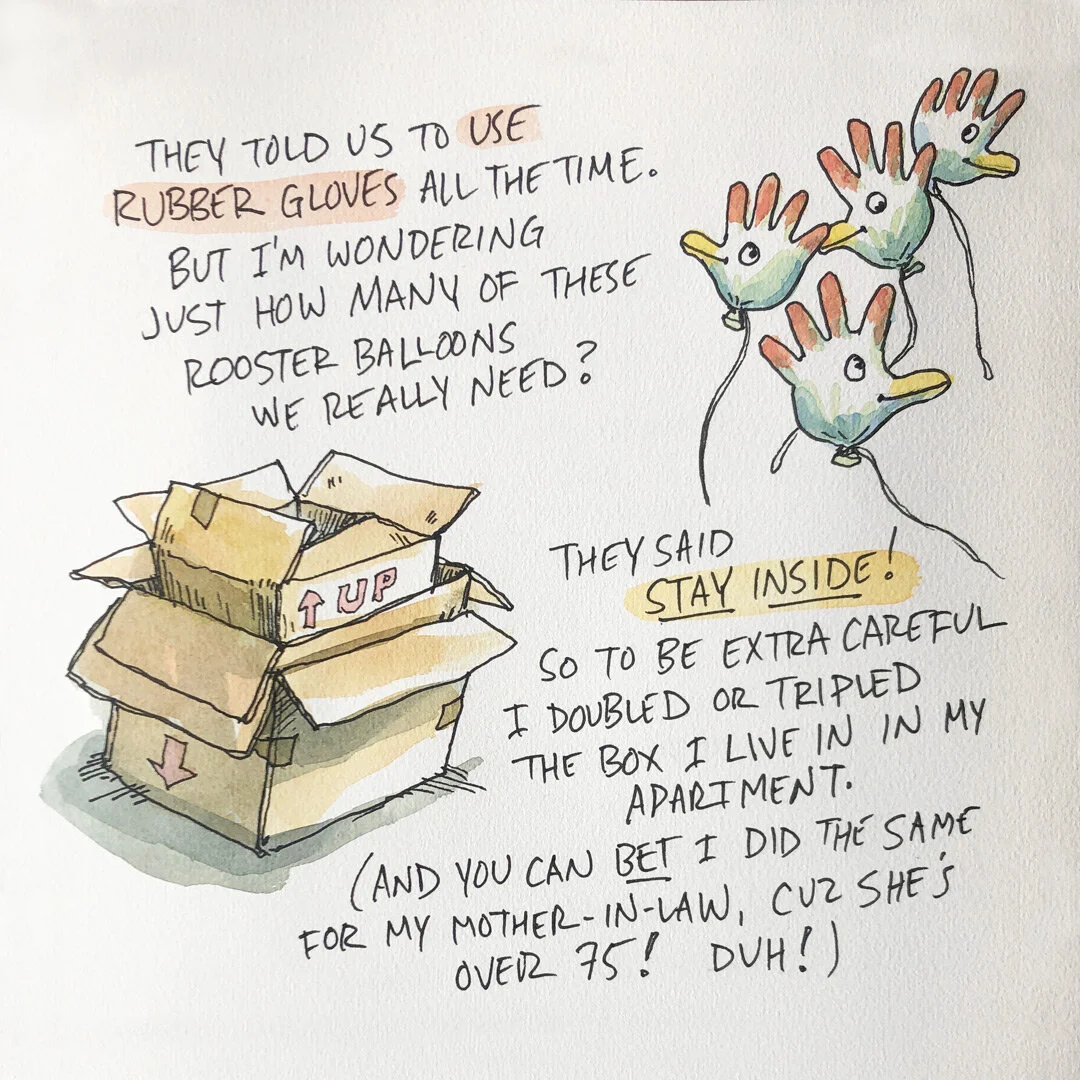 THEY TOLD US TO USE
RUBBER GLOVES ALL THE TIME.
BUT I'M WONDERING
JUST HOW MANY OF THESE
ROOSTER BALLOONS
WE REALLY NEED?
↑ UP
THEY SAID
STAY INSIDE!
SO TO BE EXTRA CAREFUL
I DOUBLED OR TRIPLED
THE BOX I LIVE IN IN MY
APARTMENT.
(AND YOU CAN BET I DID THE SAME
FOR MY MOTHER-IN-LAW, CUZ SHE'S
OVER 75! DUH!)